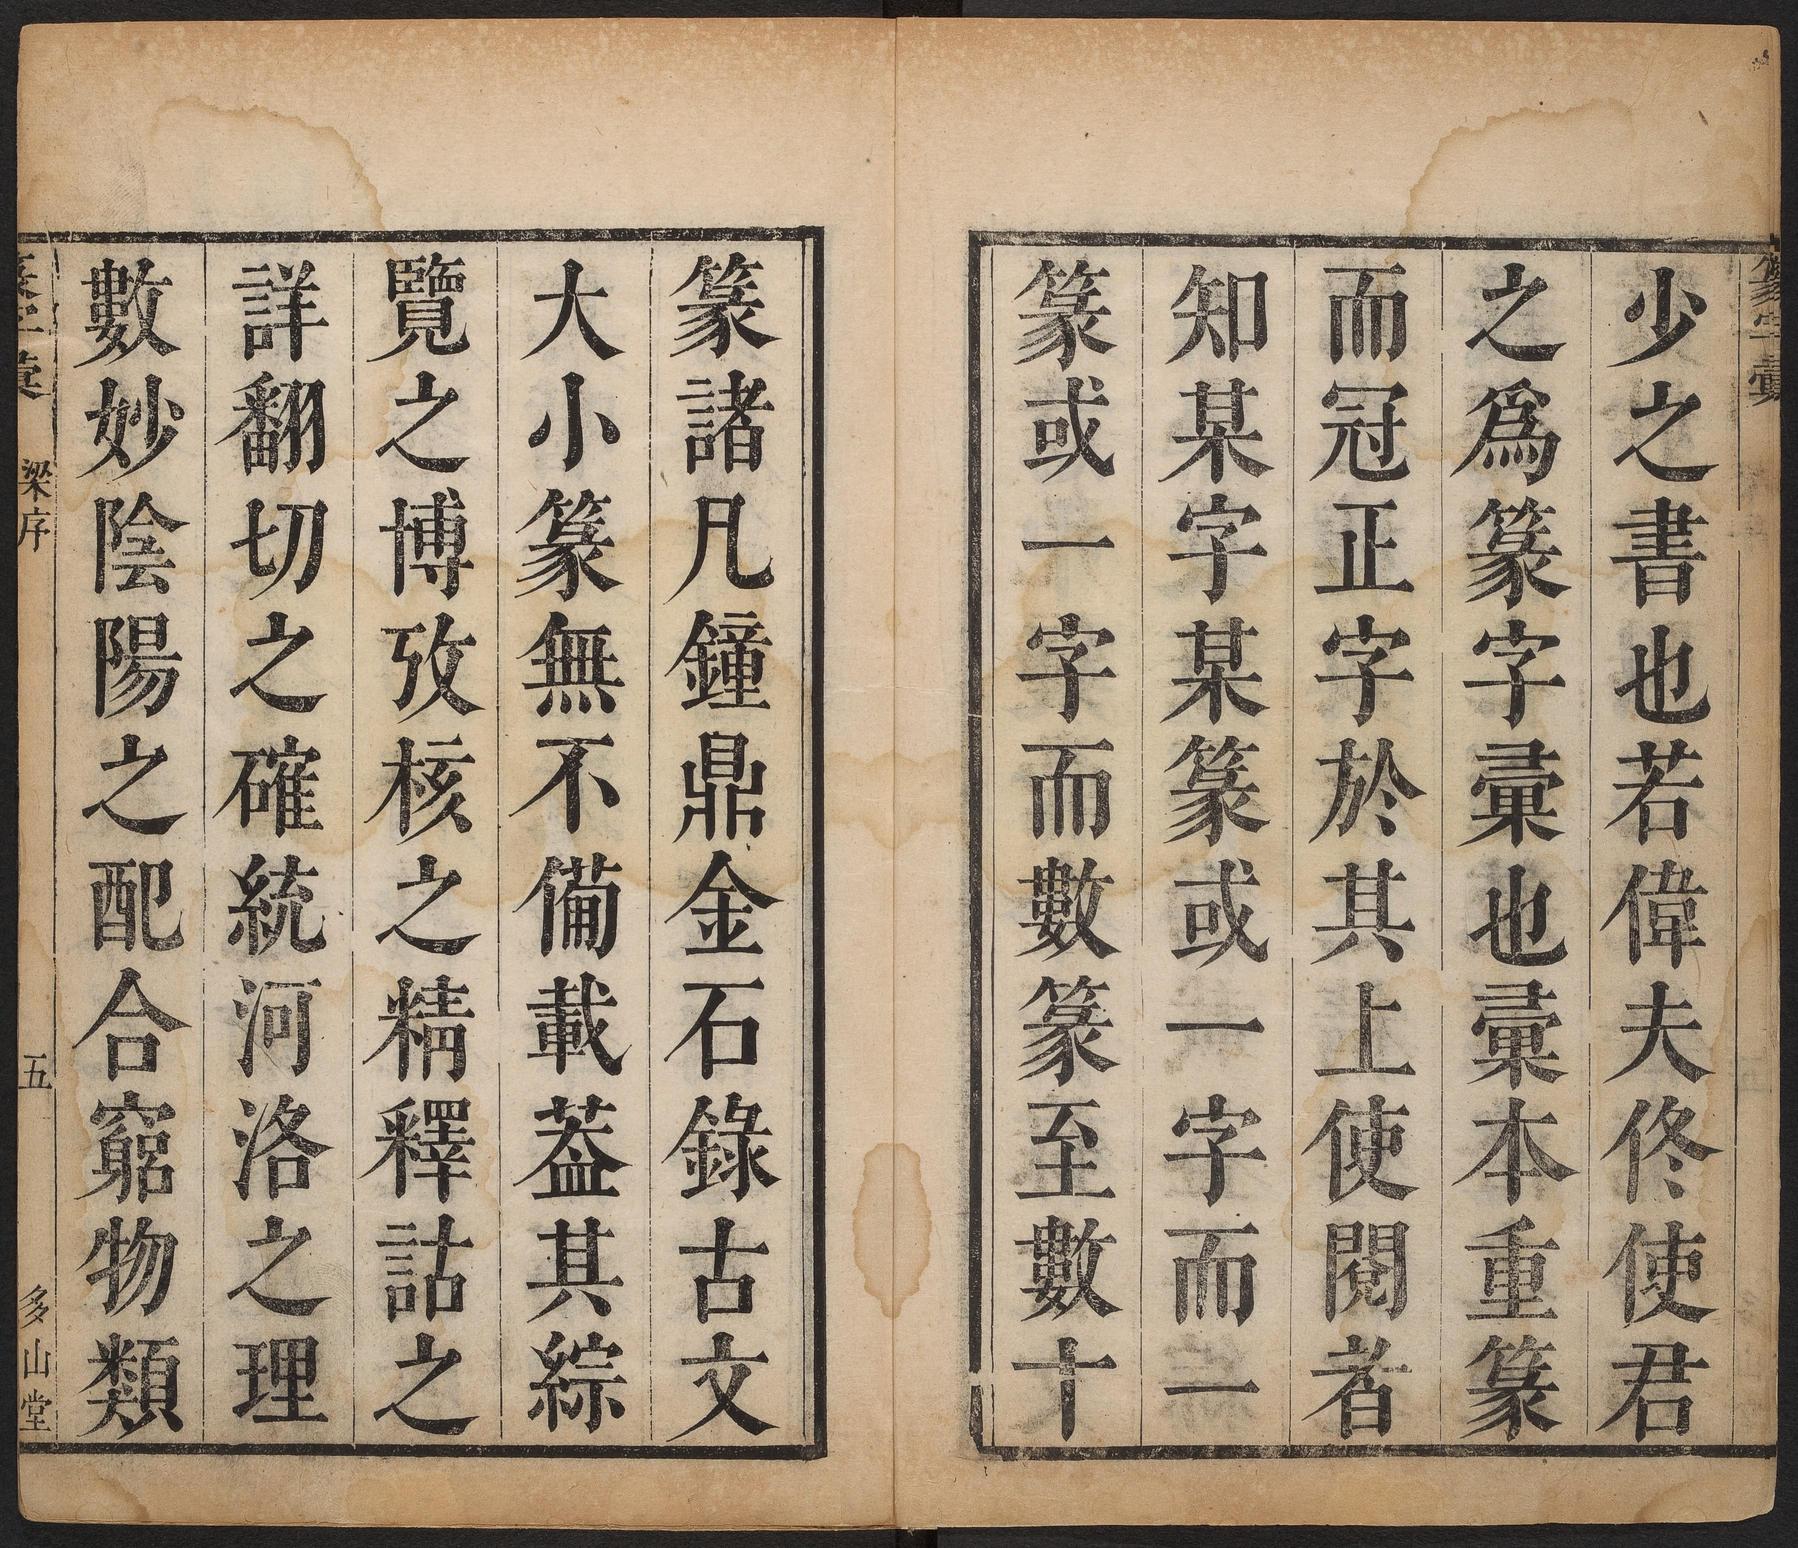 篆字彙
少之書也若偉夫佟使君
之爲篆字彙也彙本重篆
而冠正字於其上使閱者
知某字某篆或一字而一
篆或一字而數篆至數十
篆諸凡鐘鼎金石錄古文
大小篆無不備載葢其綜
覽之博攷核之精釋詁之
詳翻切之確統河洛之理
數妙陰陽之配合窮物類
篆字彙
梁序
五
多山堂